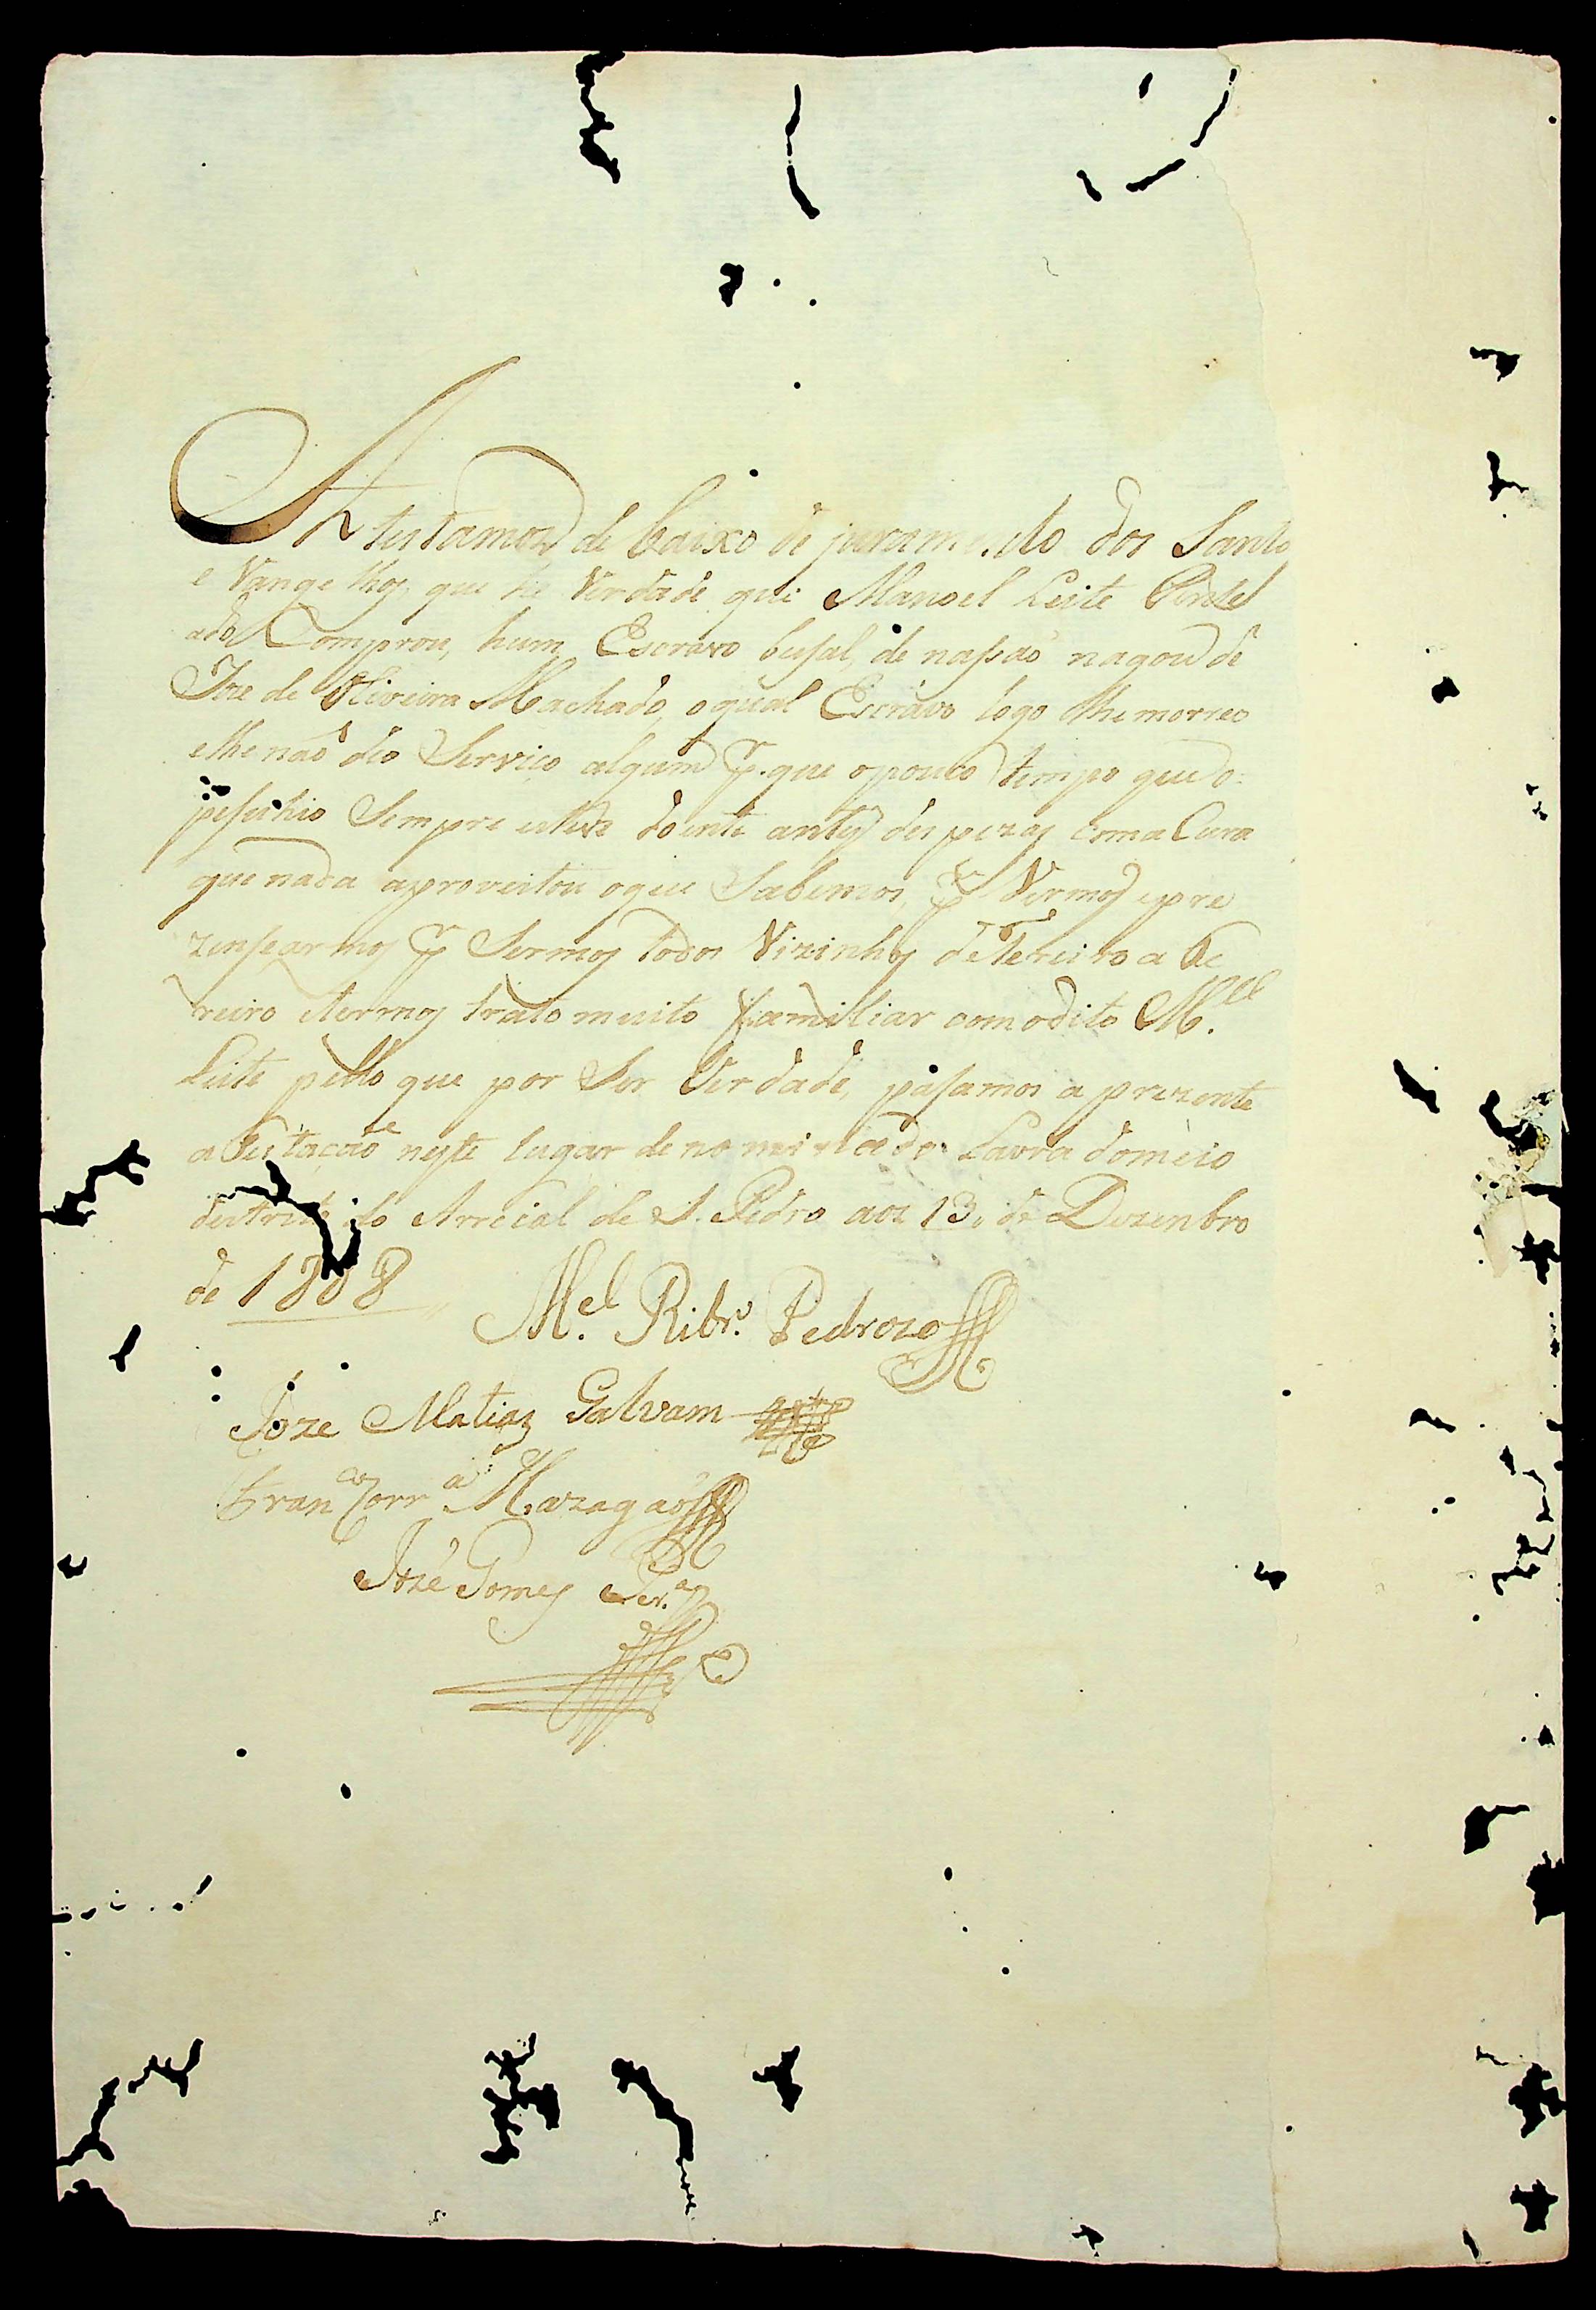 Atestamos de baixo de juramento dos Santo
e Vangelhos que he Verdade que Manoel Leite Pentel
ado Comprou, hum Escravo busal, de nassaõ nagou de
Joze de Oliveira Machado, oqual Escravo logo lhemorreo
elhenaõ deo Serviço algum P.r que opouco tempo quedo
pesuhio Sempre esteve doente antes despezas coma Cura
quenada aproveitou oque Sabemos, P.r Vermos epre
zensearmos P.r Sermos todos Vizinhos deTereiro a te
reiro etermos trato muito familiar comodito M.el
Leite pello que por Ser Verdade, pasamos a prezente
atestaçaõ neste lugar denominado Lavra domeio
destrito do Arreial de S. Pedro aos 13, de Dezenbro
de 1808
M.el Ribr.o Pedrozo
Joze Matias Galvam
Fran.co Corr.a Mazagaõ
Joze Gomes Per.a